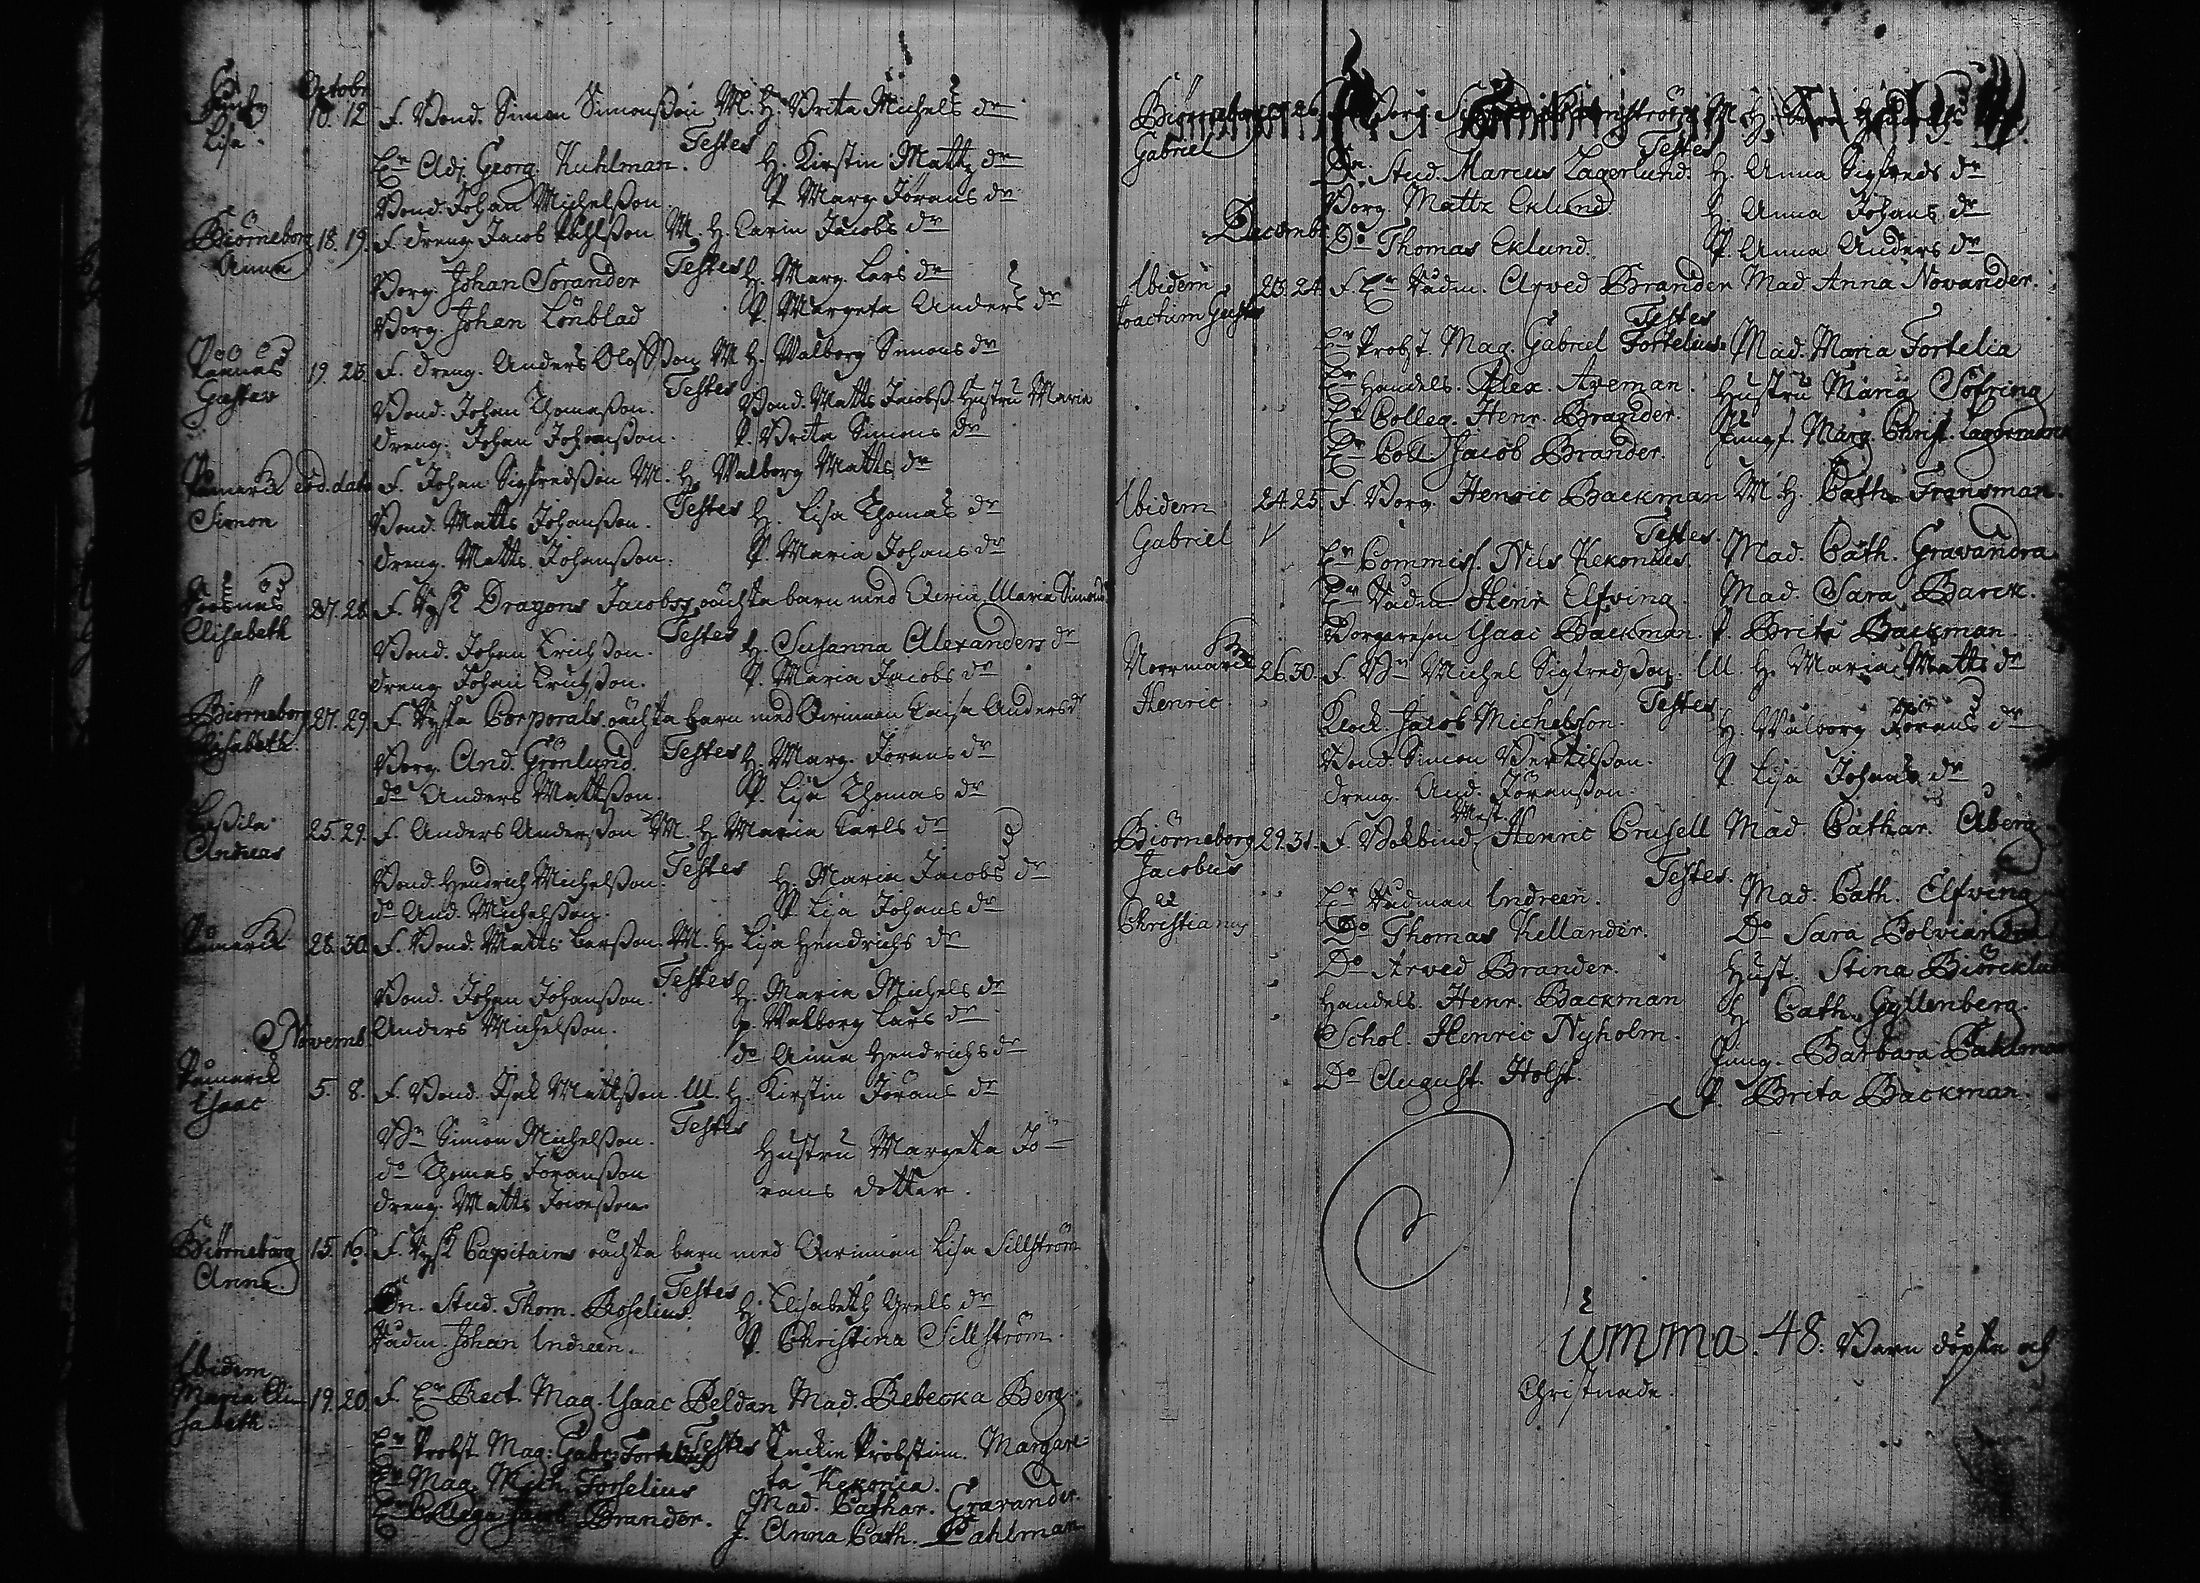 Octobr
Lisa. 10. 12. F. Bond. Simon Simonsson M. H. Brita Michels dr
Testes
Hr Adj. Georg. Kuhlman. H. Kirstin Matts dr
Bond. Johan Michelsson. P. Marg. Jörans dr
Biörneborg 18. 19. F. dreng Jacob Påhlsson M. H. Carin Jacobs dr
Anna
Testes
Borg. Johan Sorander H. Marg. Lars dr
Borg. Johan Lönblad P. Margeta Anders dr
19. F. dreng. Anders Olofsson M. H. Walborg Simons dr
Gustav
Testes
Bond. Johan Thomasson. Bond. Matts Jacobss. Hustru Maria
dreng. Johan Johansson. P. Brita Simons dr
eod. dato F. Johan Sigfredsson M. H. Walborg Matts dr
Simon
Testes
Bond. Matts Johansson. H. Lisa Thomas dr
dreng. Matts Johansson. P. Maria Johans dr
27. 28. F. Rysk Dragons Jacobs oächta barn med Qwin. Maria Simons
Elisabeth
Testes
Bond. Johan Erichsson. H. Susanna Alexanders dr
dreng Johan Erichsson. P. Maria Jacobs dr
Biörneborg 27. 29. F. Ryska Corporals oächta barn med Qwinnan Caisa Anders dr
Elisabeth
Testes
Borg. And. Grönlund. H. Marg. Jörans dr
do Anders Mattsson. P. Lisa Thomas dr
25. 29. F. Anders Andersson M. H. Maria Carls dr
Andreas
Testes
Bond. Hendrich Michelsson. H. Maria Jacobs dr
do And. Michelsson. P. Lisa Johans dr
28. 30. F. Bond. Matts Larsson. M. H. Lisa Hendrichs dr
Testes
Bond. Johan Johansson. H. Maria Michels dr
Anders Michelsson. P. Walborg Lars dr
Novemb. do Anna Hendrichs dr
Påmark 5. 8. F. Bond. Isak Mattsson. M. H. Kirstin Jörans dr
Isaac
Testes
Bn Simon Michelsson. Hustru Margeta Jö-
do Thomas Joransson rans dotter.
dreng. Matts
Biörneborg 15. 16. F. Rysk Capitains oächta barn med Qwinnan Lisa Sillström
Anna.
Testes
Dn. Stud. Thom. Boselius. H. Elisabeth Grels dr
Rådm. Johan Indreen. P. Christina Sillström.
Ibidem
Maria Eli- 19. 20. F. Hr Rect. Mag. Isaac Peldan Mad. Rebecka Berg.
sabeth.
Testes
Hr Probst. Mag. Gabr. Fortelius Enckie Probstinn. Margare-
Hr Mag. Mich. Forselius ta Kekonia.
Mad. Cathar. Gravander.
Hr Collega Jacob Brander. J. Anna Cath. Pahlman
Biörneborg
Gabriel
Testes
Dn. Stud. Marcus Lagerlund. H. Anna Sigfreds dr
Borg. Matts Eklund. H. Anna Johans dr
Decemb. Do Thomas Eklund. P. Anna Anders dr
Ibidem 23. 24. F. Hr Rådm. Arved Brander Mad. Anna Novander.
Joachim Gustav
Testes
Hr Probst. Mag. Gabriel Fortelius. Mad. Maria Fortelia
Hr Handels. Alex. Aveman. Hustru Maria Söfring
Hr Colleg. Henr. Brander. Jungf. Marg. Christ. Lagermark
Hr Coll. Jacob Brander.
Ibidem 24. 25. F. Borg. Henric Backman M. H. Cath. Fransman.
Gabriel
Testes.
Hr Commiss. Nils Kekonius. Mad. Cath. Gravandra
Hr Rådm. Henr. Elfving. Mad. Sara Barck.
Borgareson Isaac Backman. P. Brita Backman.
Norrmark 26. 30. F. Bn Michel Sigfredsson. M. H. Maria Matts dr
Henric.
Testes
Klock. Jacob Michelsson. H. Walborg Jörans dr
Bond. Simon Bertilsson. P. Lisa Johans dr
dreng. And. Jöransson.
Biörneborg 29. 31. F. Bokbind. Mest. Henric Crusell Mad. Cathar. Åberg.
Jacobus
Christianus
Testes.
Hr Rådman Indreen. Mad. Cath. Elfving
Do Thomas Kellander. Do Sara Polviander
Do Arved Brander. Hust. Stina Biörcklu
Handels. Henr. Backman H. Cath. Gyllenberg.
Schol. Henric Nyholm. Jung. Barbara Pahlman
Do August. Holst. P. Brita Backman.
Summa. 48. Barn döpte och
Christnade.